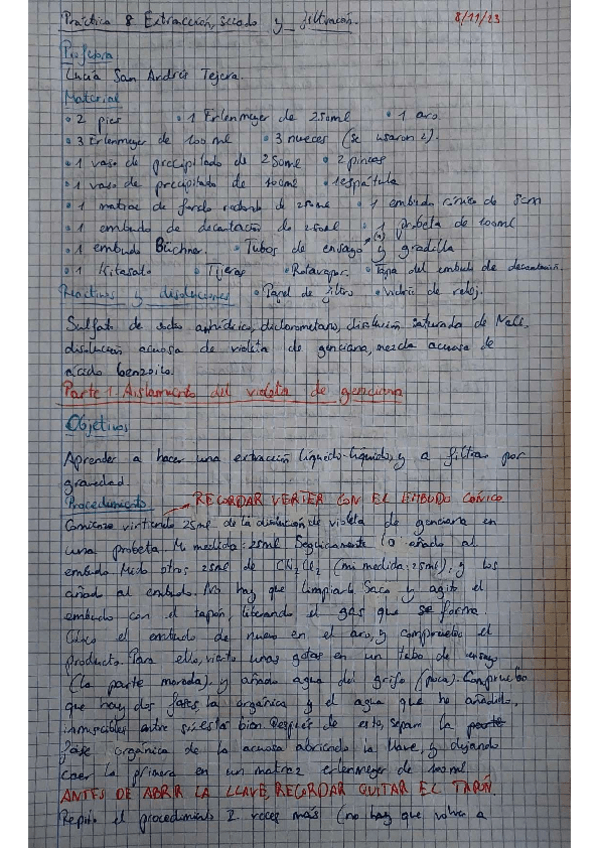 Práctica 8 Extracción, secado y filtración. 8/11/23
Profesora
Lucía San Andrés Tejera.
Material
• 2 pies • 1 Erlenmeyer de 250ml • 1 aro
• 3 Erlenmeyer de 100 ml • 3 nueces (se usaron 2).
• 1 vaso de precipitado de 250ml • 2 pinzas
• 1 vaso de precipitado de 100ml • 1 espátula
• 1 matraz de fondo redondo de 25ml • 1 embudo cónico de 5cm
• 1 embudo de decantación de 250ml • 1 probeta de 100ml
• 1 embudo Büchner. • Tubos de ensayo y gradilla
• 1 Kitasato • Tijeras • Rotavapor. • Tapa del embudo de decantación.
Reactivos y disoluciones • Papel de filtro • vidrio de reloj.
Sulfato de sodio anhídrido, diclorometano, disolución saturada de NaCl,
disolución acuosa de violeta de genciana, mezcla acuosa de
ácido benzoico.
Parte 1. Aislamiento del violeta de genciana
Objetivos
Aprender a hacer una extracción líquido-líquido, y a filtrar por
gravedad.
Procedimiento → RECORDAR VERTER CON EL EMBUDO CÓNICO
Comienzo virtiendo 25ml de la disolución de violeta de genciana en
una probeta. Mi medida: 25ml Seguidamente lo añado al
embudo Mido otros 25ml de CH2Cl2 (mi medida: 25ml), y los
añado al embudo. No hay que limpiarla Saco y agito el
embudo con el tapón, liberando el gas que se forma.
Coloco el embudo de nuevo en el aro, y compruebo el
producto. Para ello, vierto unas gotas en un tubo de ensayo
(la parte morada), y añado agua del grifo (poca). Compruebo
que hay dos fases la orgánica y el agua que he añadido,
inmiscibles entre sí, está bien. Después de esto, separo la parte
fase orgánica de la acuosa abriendo la llave, y dejando
caer la primera en un matraz erlenmeyer de 100ml
ANTES DE ABRIR LA LLAVE, RECORDAR QUITAR EL TAPÓN.
Repito el procedimiento 2 veces más (no hay que volver a